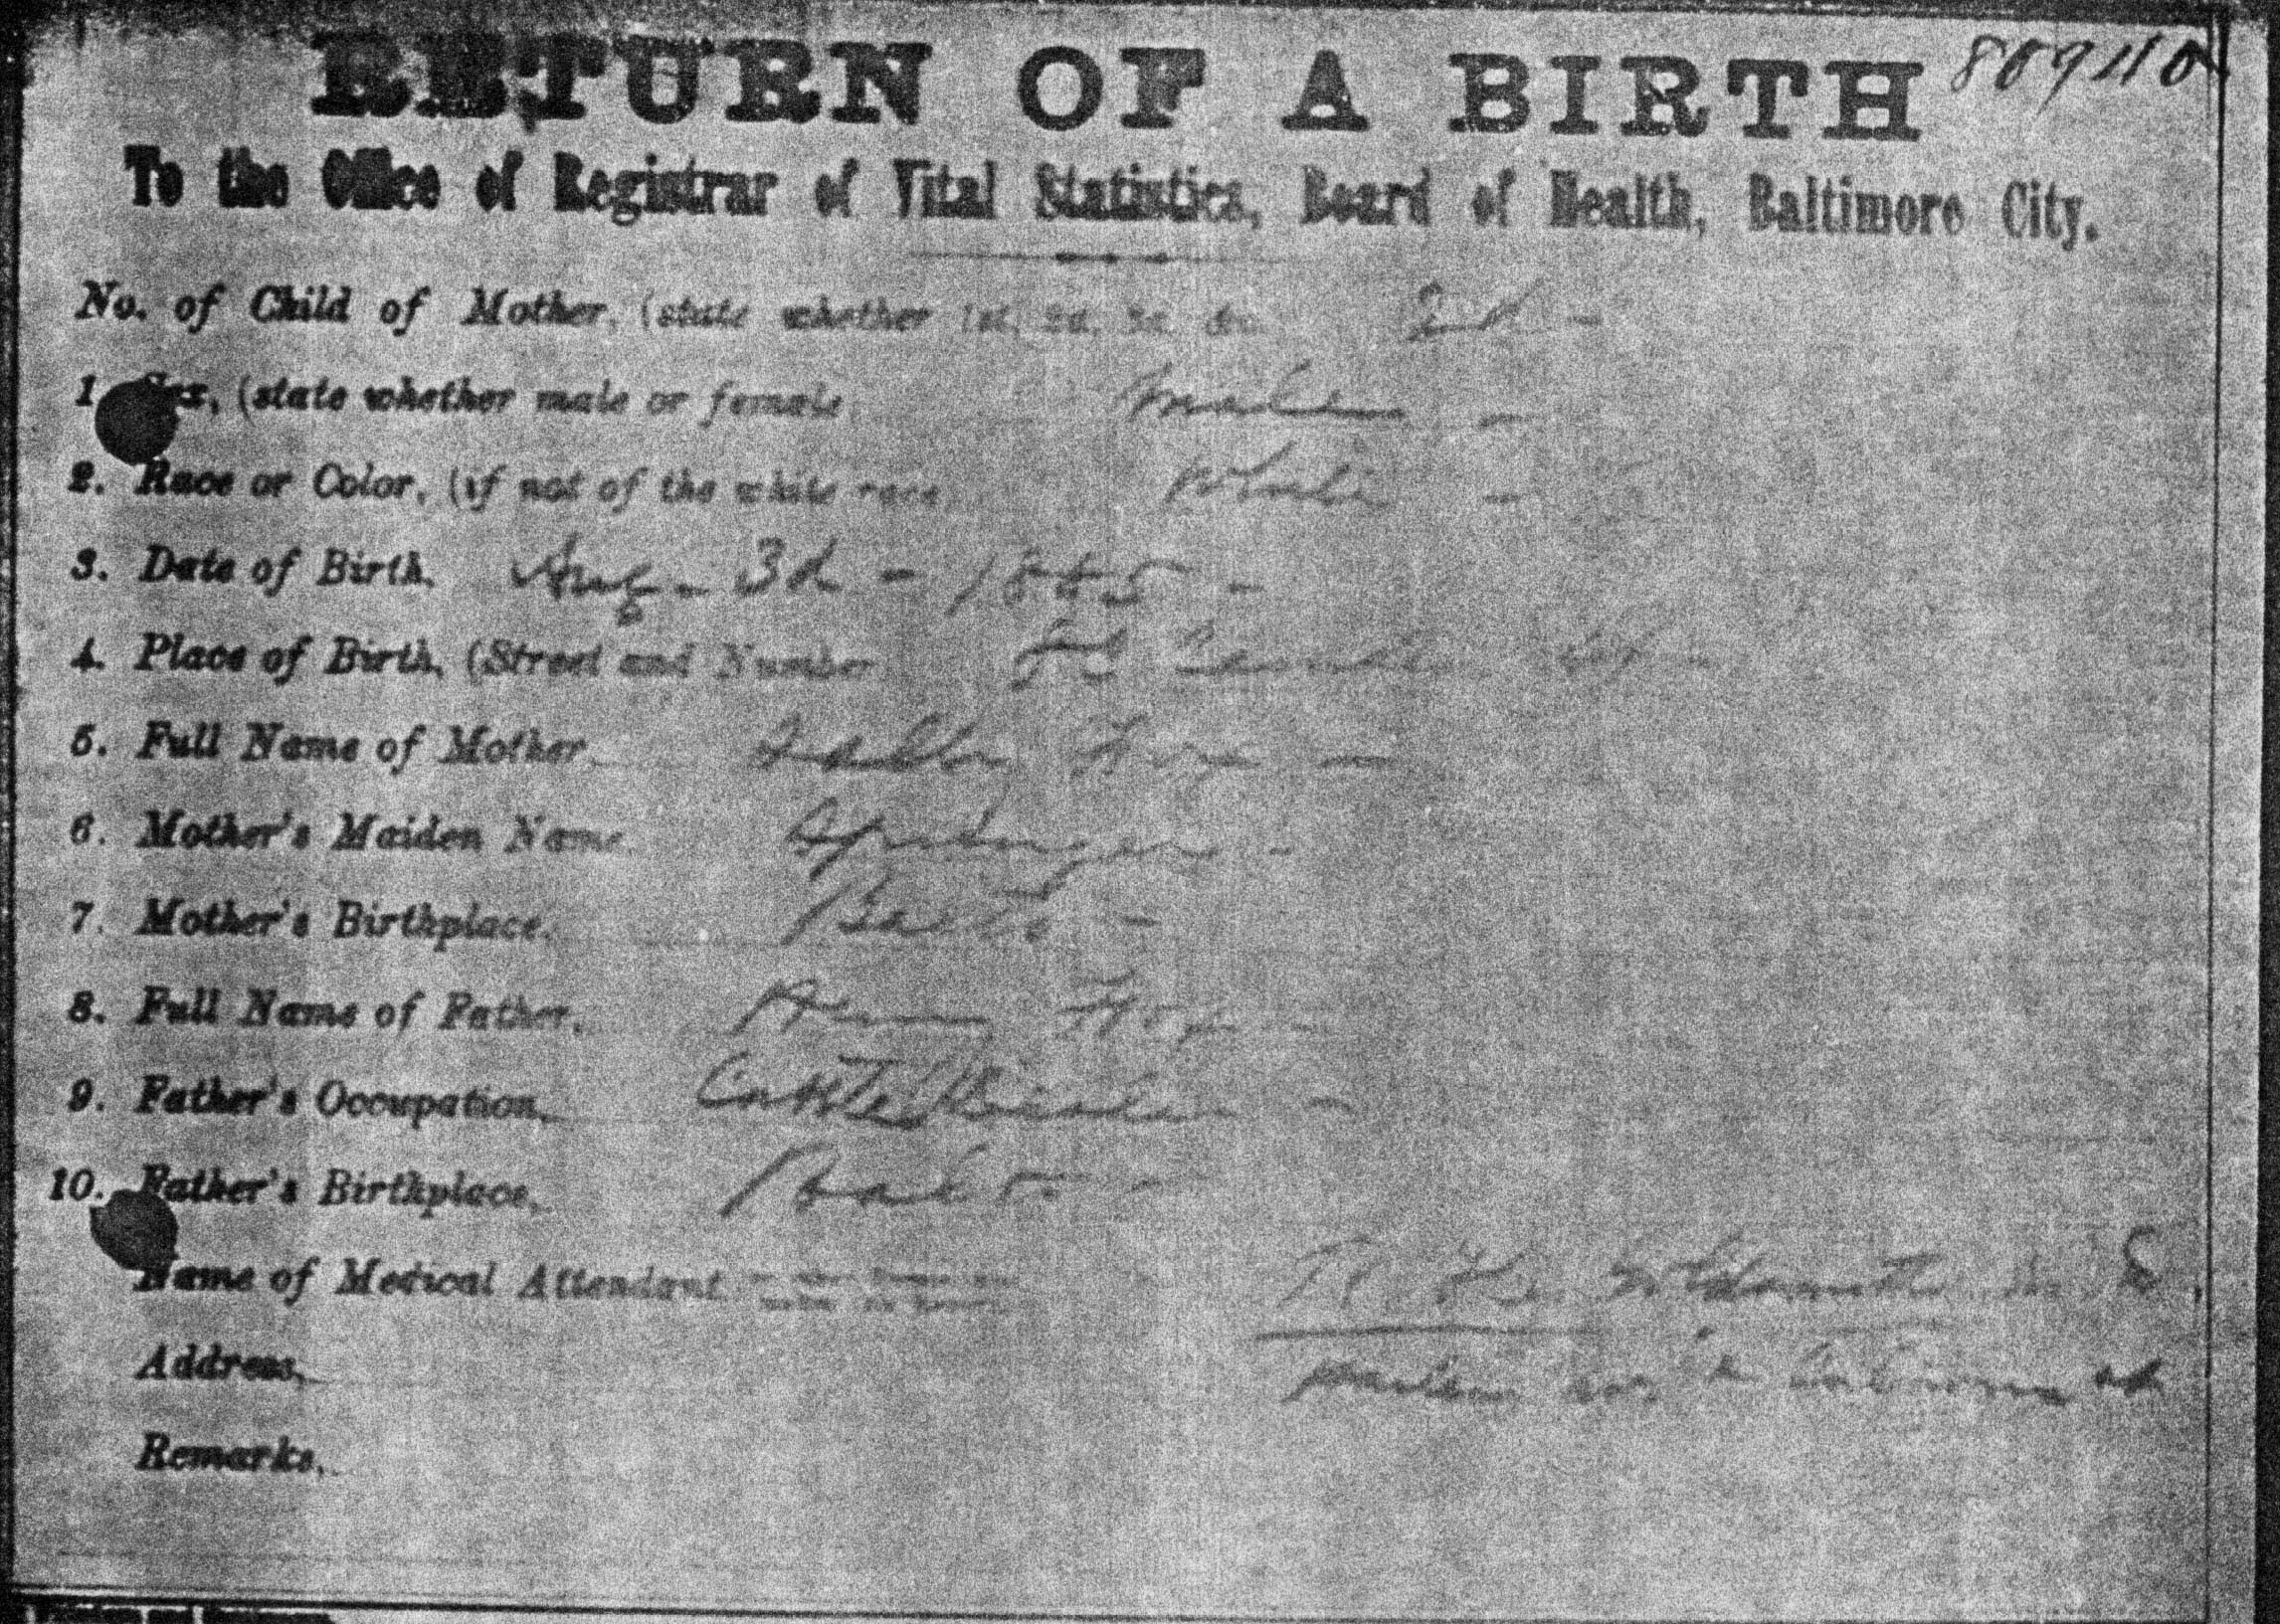 RETURN OF A BIRTH 80940
To the Office of Registrar of Vital Statistics, Board of Health, Baltimore City.
No. of Child of Mother, (state whether 1st, 2d, 3d, &c. 2d -
1. Sex, (state whether male or female male -
2. Race or Color, (if not of the white race White -
3. Date of Birth, Aug - 3d - 1885 -
4. Place of Birth, (Street and Number
5. Full Name of Mother, Fox -
6. Mother's Maiden Name, Springer -
7. Mother's Birthplace, Balto -
8. Full Name of Father, Henry Fox -
9. Father's Occupation, Cattle Dealer -
10. Father's Birthplace, Balto. -
Name of Medical Attendant Goldsmith M. D.
Address,
Remarks,